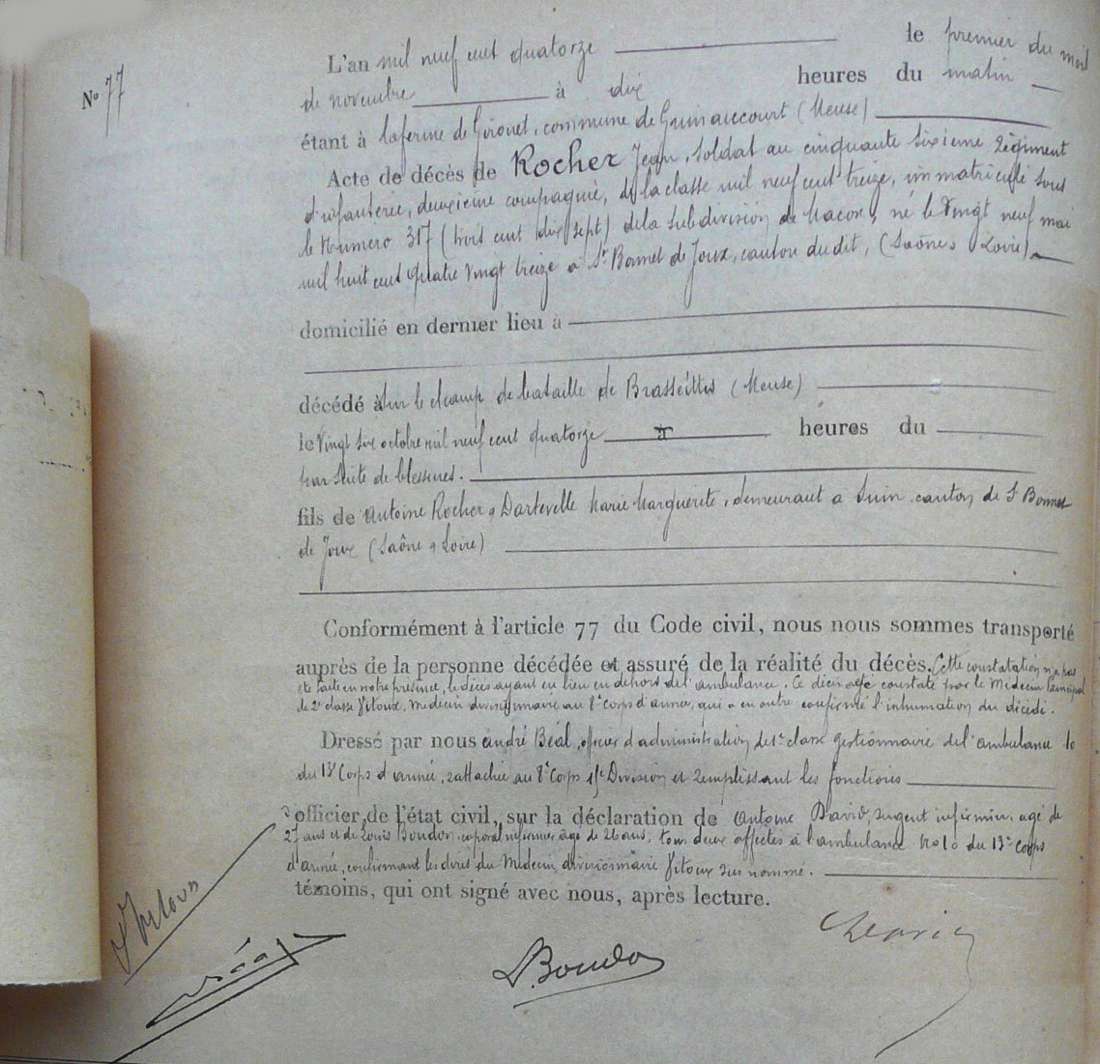 No 77
L'an mil neuf cent quatorze le premier du mois
de novembre à dix heures du matin
étant à la ferme de Gironet, commune de Guinaucourt (Meuse)
Acte de décès de Rocher Jean, soldat au cinquante sixième Régiment
d'infanterie, deuxième compagnie, de la classe mil neuf cent treize, immatriculé sous
le Numéro 317 (trois cent dix sept) de la subdivision de Macon, né le vingt neuf mai
mil huit cent quatre vingt treize à St Bonnet de Joux, canton dudit, (Saône & Loire).
domicilié en dernier lieu à
décédé sur le champ de bataille de Brasseittes (Meuse)
le vingt six octobre mil neuf cent quatorze heures du
par suite de blessures.
fils de Antoine Rocher & Dartevelle Marie Marguerite, demeurant à Suin, canton de St Bonnet
de Joux (Saône & Loire)
Conformément à l'article 77 du Code civil, nous nous sommes transporté
auprès de la personne décédée et assuré de la réalité du décès. Cette constatation n'a pas
été faite en notre présence, le décès ayant eu lieu en dehors de l'ambulance. Ce décès a été constaté par le Médecin Principal
de 2e classe Vitoux, Médecin divisionnaire au 8e corps d'armée, qui a en outre confirmé l'inhumation du décédé.
Dressé par nous André Béal, officier d'administration de 1e classe gestionnaire de l'ambulance 10
du 13e Corps d'armée, rattachée au 8e Corps 15e Division et remplissant les fonctions
d'officier de l'état civil, sur la déclaration de Antoine David, sergent infirmier, agé de
27 ans et de Louis Boudon, caporal infirmier âgé de 26 ans, tous deux affectés à l'ambulance No 10 du 13e Corps
d'armée, confirmant les dires du Médecin divisionnaire Vitoux sus nommé.
témoins, qui ont signé avec nous, après lecture.
Vitoux
Béal
L Boudon